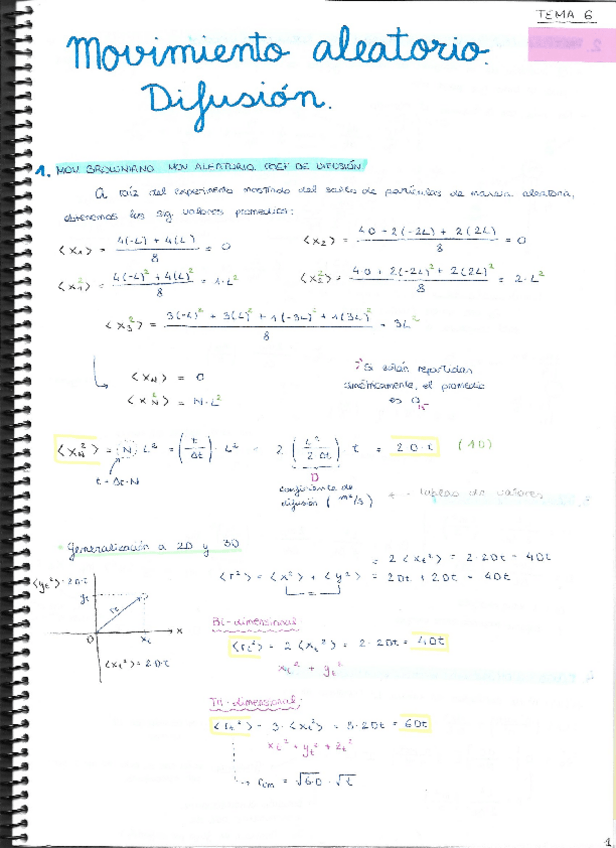 TEMA 6
Movimiento aleatorio.
Difusión.
1. MOV BROWNIANO MOV ALEATORIO COEF DE DIFUSIÓN
A raíz del experimento mostrado del salto de partículas de manera aleatoria,
obtenemos los sig valores promedios:
⟨x₁⟩ = (4(-L) + 4(L))/8 = 0
⟨x₂⟩ = (4·0 - 2(-2L) + 2(2L))/8 = 0
⟨x₁²⟩ = (4(-L)² + 4(L)²)/8 = 1·L²
⟨x₂²⟩ = (4·0 + 2(-2L)² + 2(2L)²)/8 = 2·L²
⟨x₃²⟩ = (3(-L)² + 3(L)² + 1(-3L)² + 1(3L)²)/8 = 3L²
⟨x_N⟩ = 0
⟨x_N²⟩ = N·L²
Si están repartidas
simétricamente, el promedio
es 0
⟨x_N²⟩ = N·L² = (t/Δt)·L² = 2(L²/2Δt)·t = 2D·t (1D)
t = Δt·N
D
coeficiente de
difusión (m²/s)
tablao de valores
Generalización a 2D y 3D
= 2⟨x_t²⟩ = 2·2Dt = 4Dt
⟨r²⟩ = ⟨x²⟩ + ⟨y²⟩ = 2Dt + 2Dt = 4Dt
⟨y_t²⟩ = 2D·t
y_t
r_t
0
x_t
x
⟨x_t²⟩ = 2Dt
Bi-dimensional
⟨r_t²⟩ = 2⟨x_t²⟩ = 2·2Dt = 4Dt
x_t² + y_t²
Tri-dimensional:
⟨r_t²⟩ = 3·⟨x_t²⟩ = 3·2Dt = 6Dt
x_t² + y_t² + z_t²
r_cm = √6D · √t
1